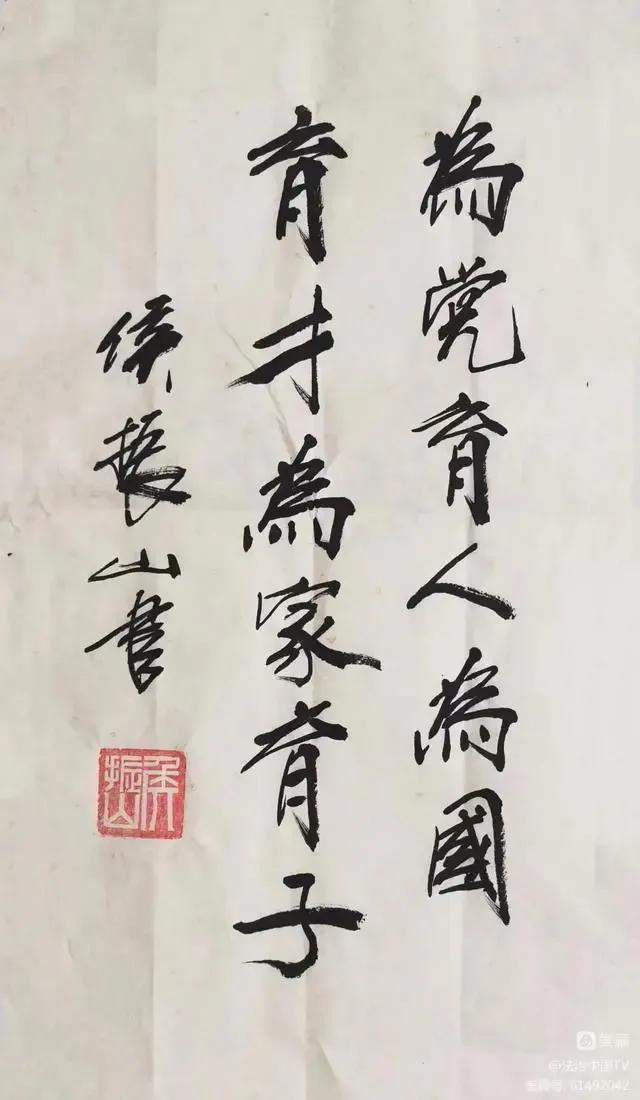 為党育人為國
育才為家育子
侯振山書
侯
振山
美篇
@法治中国TV
美篇号: 61492042